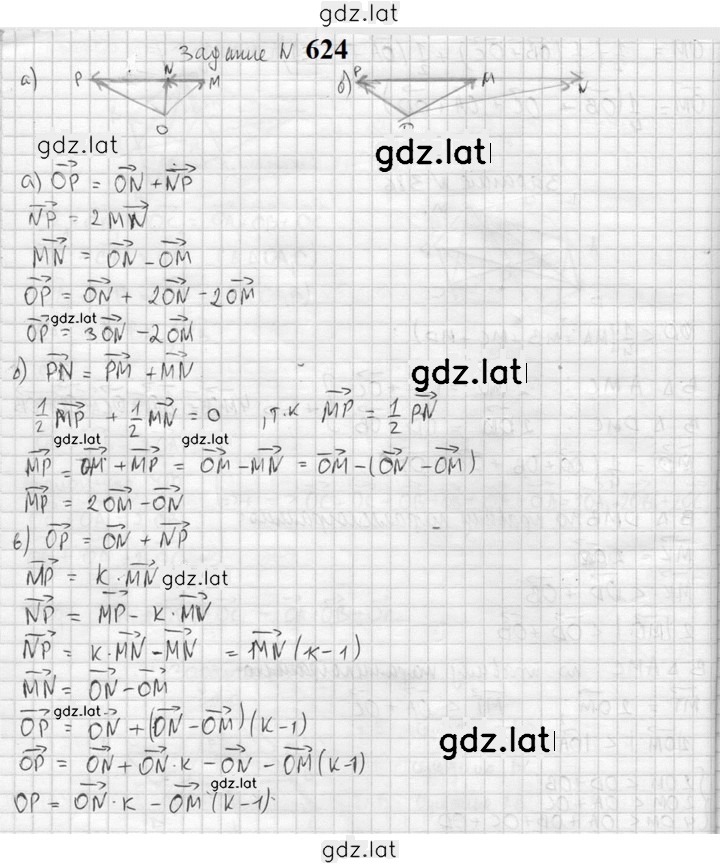 gdz.lat
Задание N 624
а) P N M O б) P M N O
gdz.lat
gdz.lat
а) OP = ON + NP
NP = 2MN
MN = ON - OM
OP = ON + 2ON - 2OM
gdz.lat
OP = 3ON - 2OM
б) PN = PM + MN
gdz.lat
1/2 MP + 1/2 MN = 0 , т.к MP = 1/2 PN
gdz.lat gdz.lat
MP = OM + MP = OM - MN = OM - (ON - OM)
MP = 2OM - ON
в) OP = ON + NP
MP = K · MN
gdz.lat
NP = MP - K · MN
NP = K · MN - MN = MN (K-1)
MN = ON - OM
gdz.lat
OP = ON + (ON - OM) (K-1)
gdz.lat
OP = ON + ON · K - ON - OM (K-1)
gdz.lat
OP = ON · K - OM (K-1)
gdz.lat